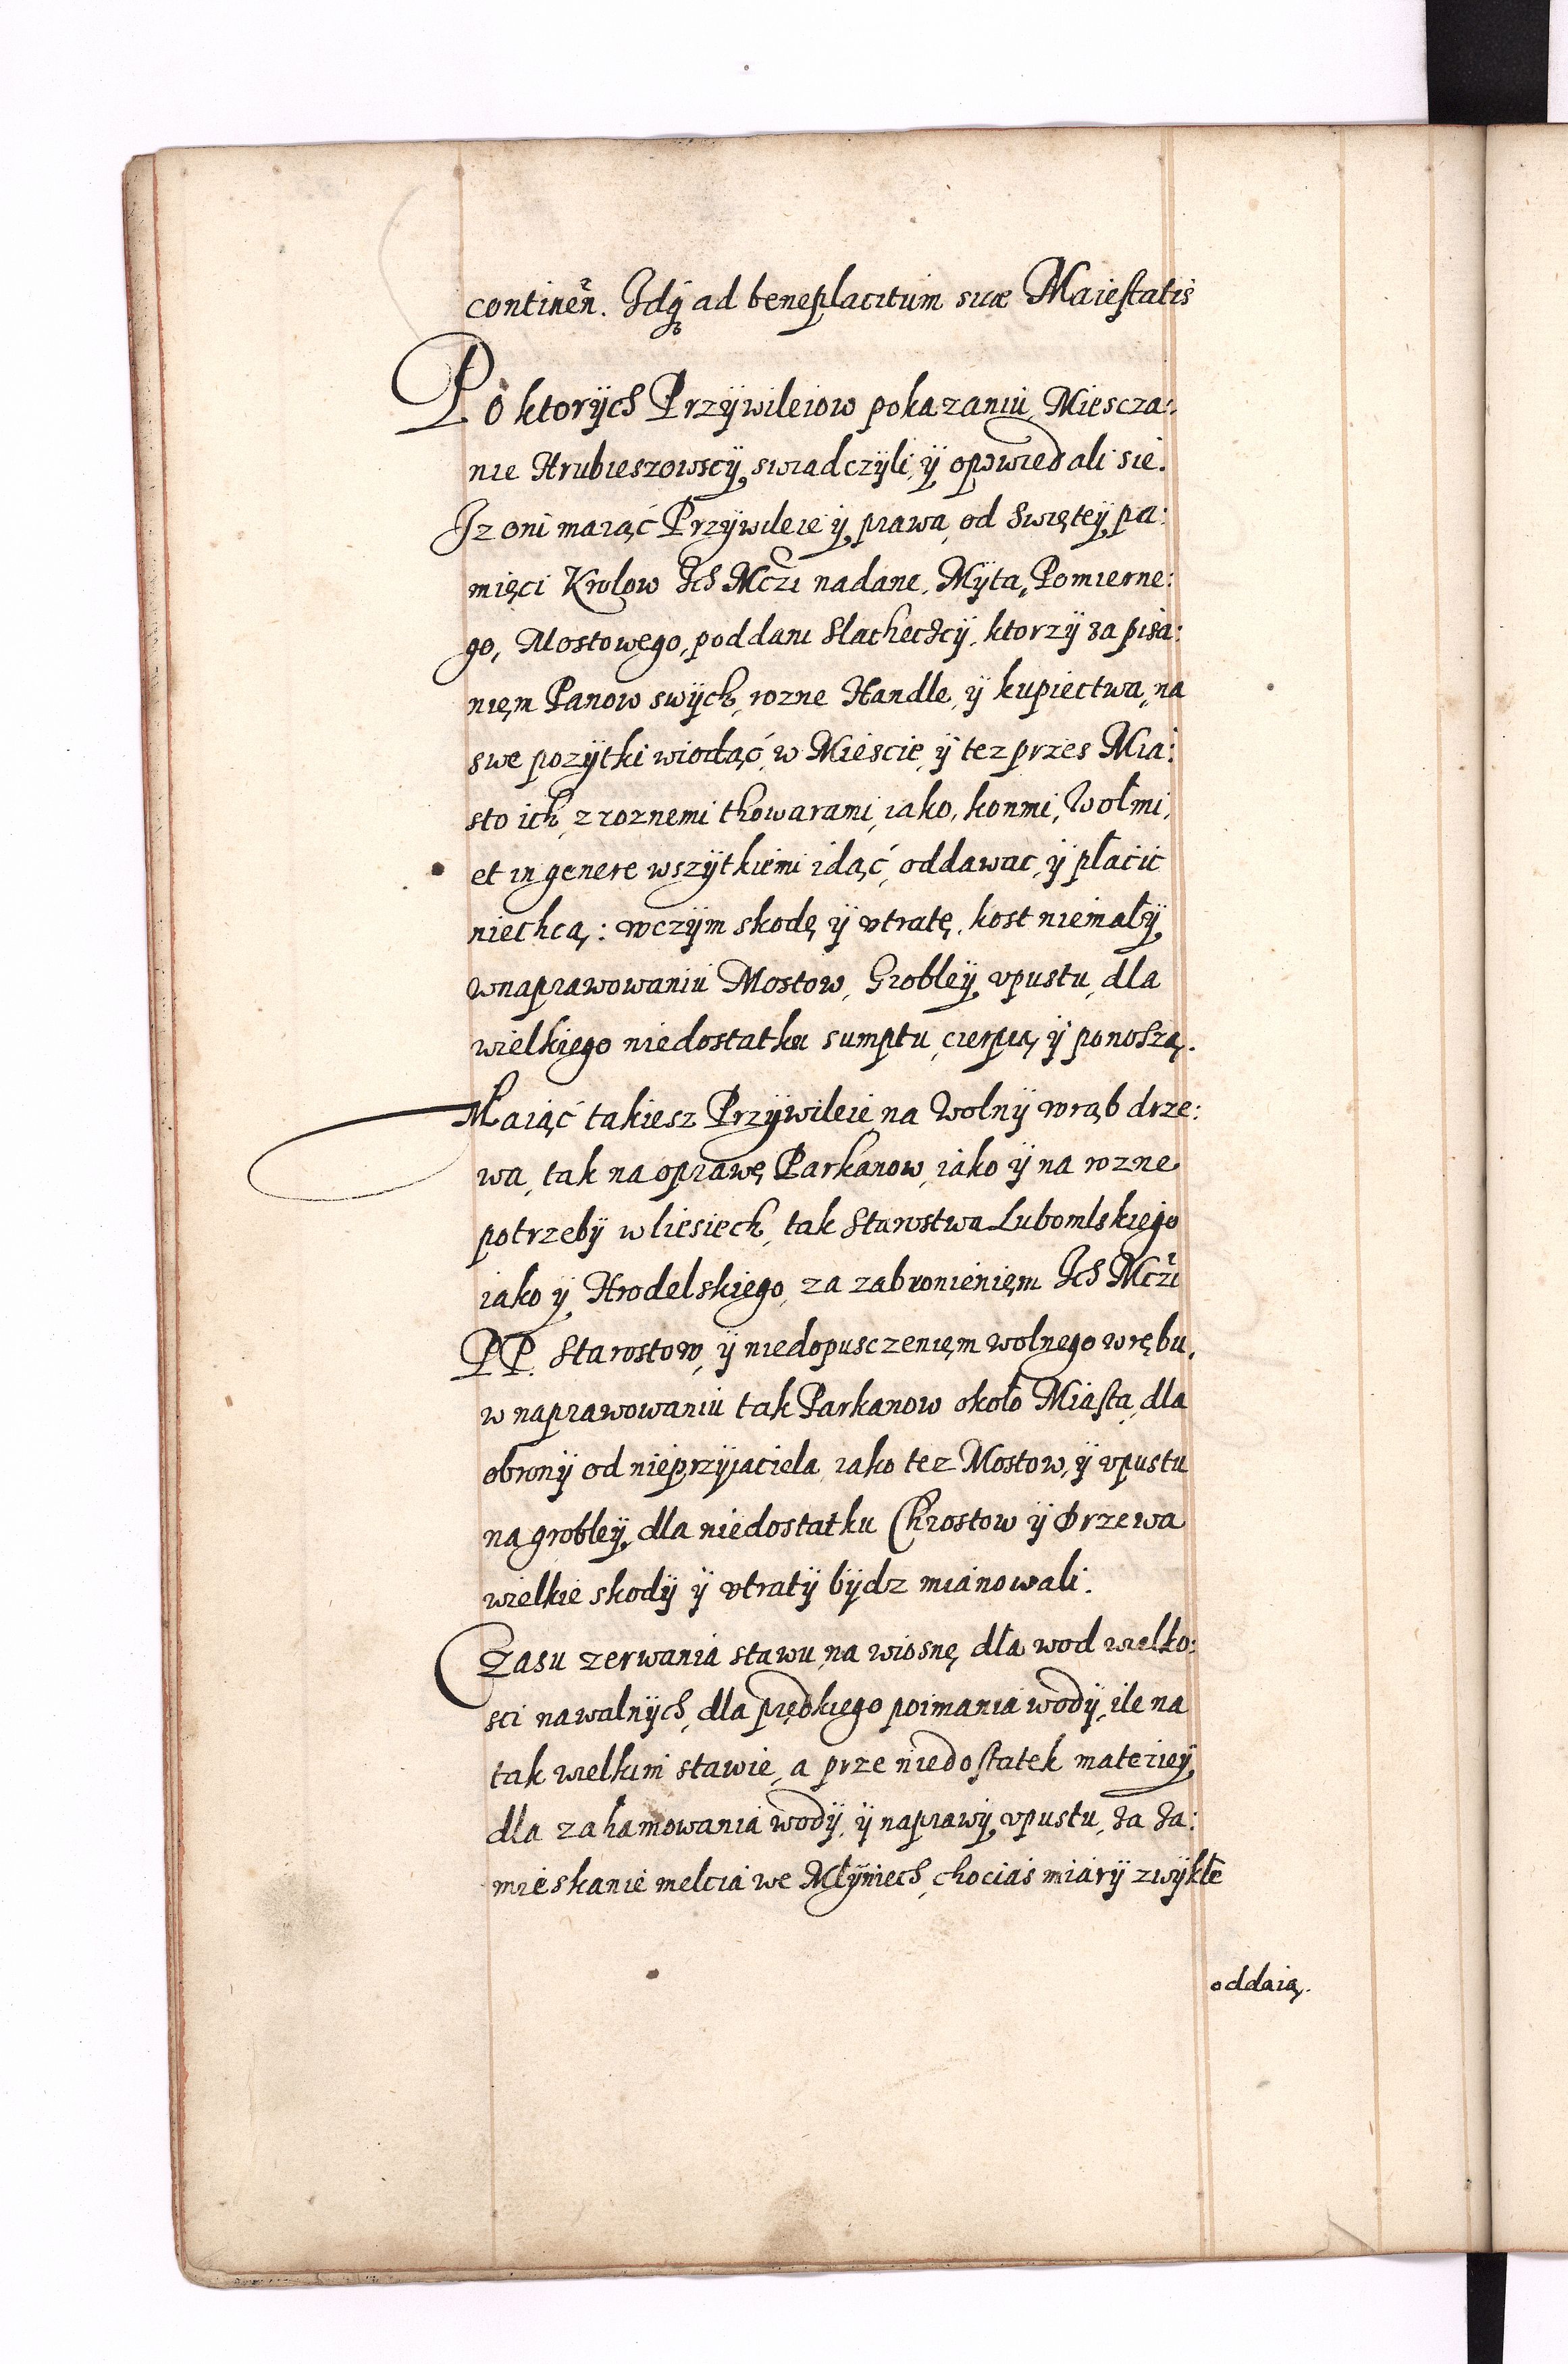 continen̄. Idq̄ ad beneplacitum suæ Maiestatis
Po ktorÿch Przÿwileiow pokazaniu, Miescza:
nie Hrubieszowscÿ, swiadczÿli, ÿ opowiedali sie.
Iz oni maiąć Przÿwileie ÿ prawa, od Swiętey pa:
mięci Krolow Ich Mczi nadane, Mÿta, Pomierne:
go, Mostowego, poddani Slacheckcÿ, ktorzÿ za pisa:
nięm Panow swÿch, rozne Handle, ÿ kupiectwa, na
swe pozÿtki wiodąć, w Miescie, ÿ tez przes Mia:
sto ich, z roznemi thowarami, iako, konmi, Wołmi,
et in genere wszÿtkiemi idąć, oddawac, ÿ płacic
niechcą: wczÿm skodę ÿ vtratę, kost niemałÿ,
wnaprawowaniu Mostow, Grobleÿ, vpustu, dla
wielkiego niedostatku sumptu, cierpią, ÿ ponoszą.
Maiąć takiesz Przÿwileie, na Wolnÿ wrąb drze:
wa, tak na oprawę Parkanow, iako ÿ na rozne
potrzebÿ w liesiech, tak Starostwa Lubomlskiego
iako ÿ Hrodelskiego, za zabronienięm Ich Mczi
PP. Starostow, ÿ niedopusczenięm wolnego wrębu,
w naprawowaniu tak Parkanow około Miasta, dla
obronÿ od nieprzÿiaciela, iako tez Mostow, ÿ vpustu
na grobleÿ, dla niedostatku Chrostow ÿ Drzewa
wielkie skodÿ ÿ vtratÿ bÿdz mianowali.
Czasu zerwania stawu, na wiosnę, dla wod wielko:
sci nawalnÿch, dla prędkiego poimania wodÿ, ile na
tak wielkim stawie, a prze niedostatek materieÿ,
dla zahamowania wodÿ, ÿ naprawÿ, vpustu, za za:
mieskanie melcia we Młÿniech, chocias miarÿ zwÿkłe
oddaią.